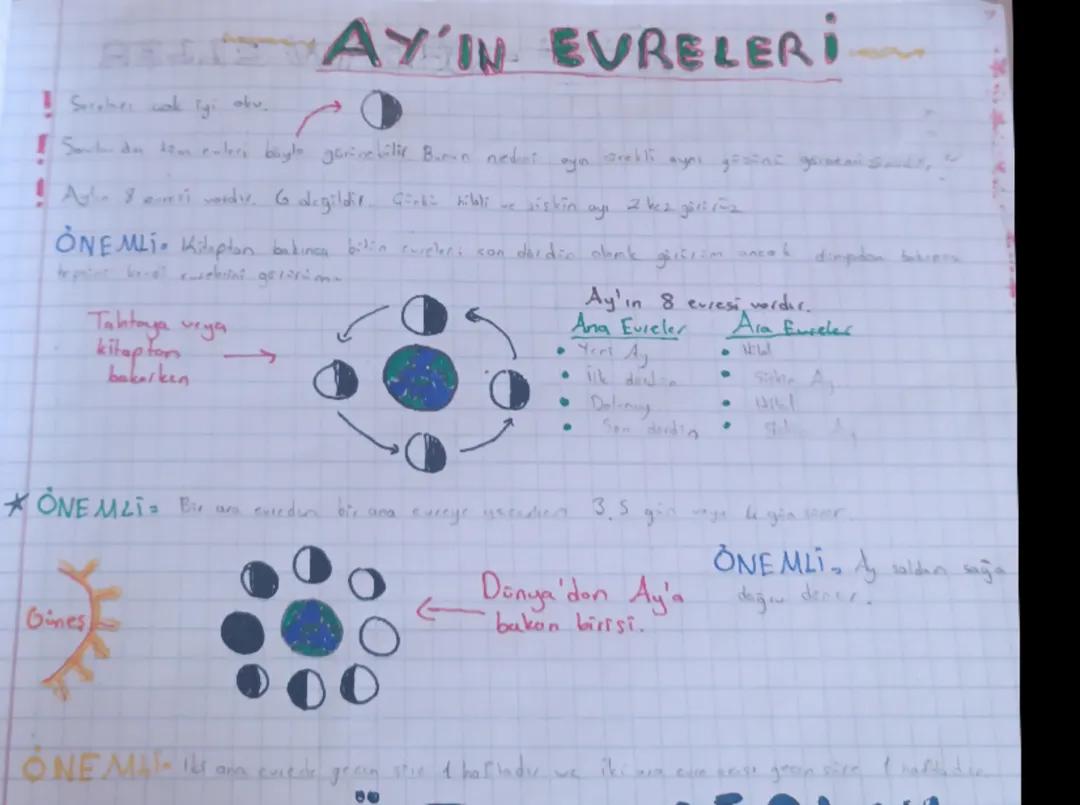 AY'IN EVRELERİ
! Soruları çok iyi oku.
! Sorularda tüm evreleri böyle görünebilir Bunun nedeni ayın sürekli aynı yüzünü görmemizdir.
! Ay'ın 8 evresi vardır. 6 değildir. Çünkü hilali ve şişkin ayı 2 kez görürüz
ÖNEMLİ= Kitaptan bakınca bütün evreleri son dördün olarak görürüm ancak dünyadan bakınca
evrelerini görürüm.
Tahtaya veya
kitaptan
bakarken
Ay'ın 8 evresi vardır.
Ana Evreler Ara Evreler
• Yeni Ay • Hilal
• İlk dördün • Şişkin Ay
• Dolunay • Hilal
• Son dördün • Şişkin Ay
* ÖNEMLİ= Bir ara evreden bir ana evreye 3,5 gün veya 4 gün sürer.
Güneş
Dünya'dan Ay'a
bakan birisi.
ÖNEMLİ= Ay soldan sağa
doğru döner.
ÖNEMLİ= İki ana evrede geçen süre 1 haftadır ve iki ara evre arası geçen süre 1 haftadır